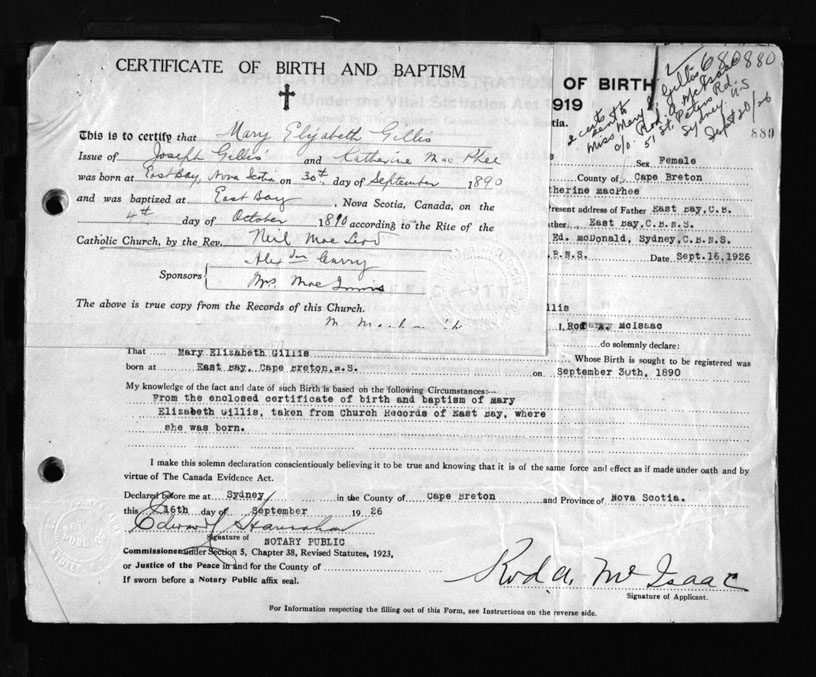 CERTIFICATE OF BIRTH AND BAPTISM
This is to certify that Mary Elizabeth Gillis
Issue of Joseph Gillis and Katharine Mac Phee
was born at East Bay, Nova Scotia on 30th. day of September 1890
and was baptized at East Bay, Nova Scotia, Canada, on the
4th. day of October 1890 according to the Rite of the
Catholic Church, by the Rev. Neil Mac Leod
Sponsors
Mrs. Mac Innis
The above is true copy from the Records of this Church.
OF BIRTH
1919
tia.
2 certs
sent to
Miss Mary E. Gillis
c/o. Rod. A. McIsaac
51 St. Peters Rd.
Sydney N.S
Sept 20/26
880
680880
Sex Female
County of Cape Breton
therine MacPhee
Present address of Father East Bay, C.B.
ther East Bay, C.B.N.S.
Ed. McDonald, Sydney, C.B.N.S.
.B.N.S. Date Sept.16,1926
llis
I, Rod A. McIsaac
do solemnly declare:
That Mary Elizabeth Gillis Whose Birth is sought to be registered was
born at East Bay, Cape Breton, N.S. on September 30th, 1890
My knowledge of the fact and date of such Birth is based on the following Circumstances:—
From the enclosed certificate of birth and baptism of Mary
Elizabeth Gillis, taken from Church Records of East Bay, where
she was born.
I make this solemn declaration conscientiously believing it to be true and knowing that it is of the same force and effect as if made under oath and by
virtue of The Canada Evidence Act.
Declared before me at Sydney in the County of Cape Breton and Province of Nova Scotia.
this 16th day of September 1926
Edward
Signature of NOTARY PUBLIC
Commissioner under Section 5, Chapter 38, Revised Statutes, 1923,
or Justice of the Peace in and for the County of
If sworn before a Notary Public affix seal.
Rod. A. McIsaac
Signature of Applicant.
For Information respecting the filling out of this Form, see Instructions on the reverse side.